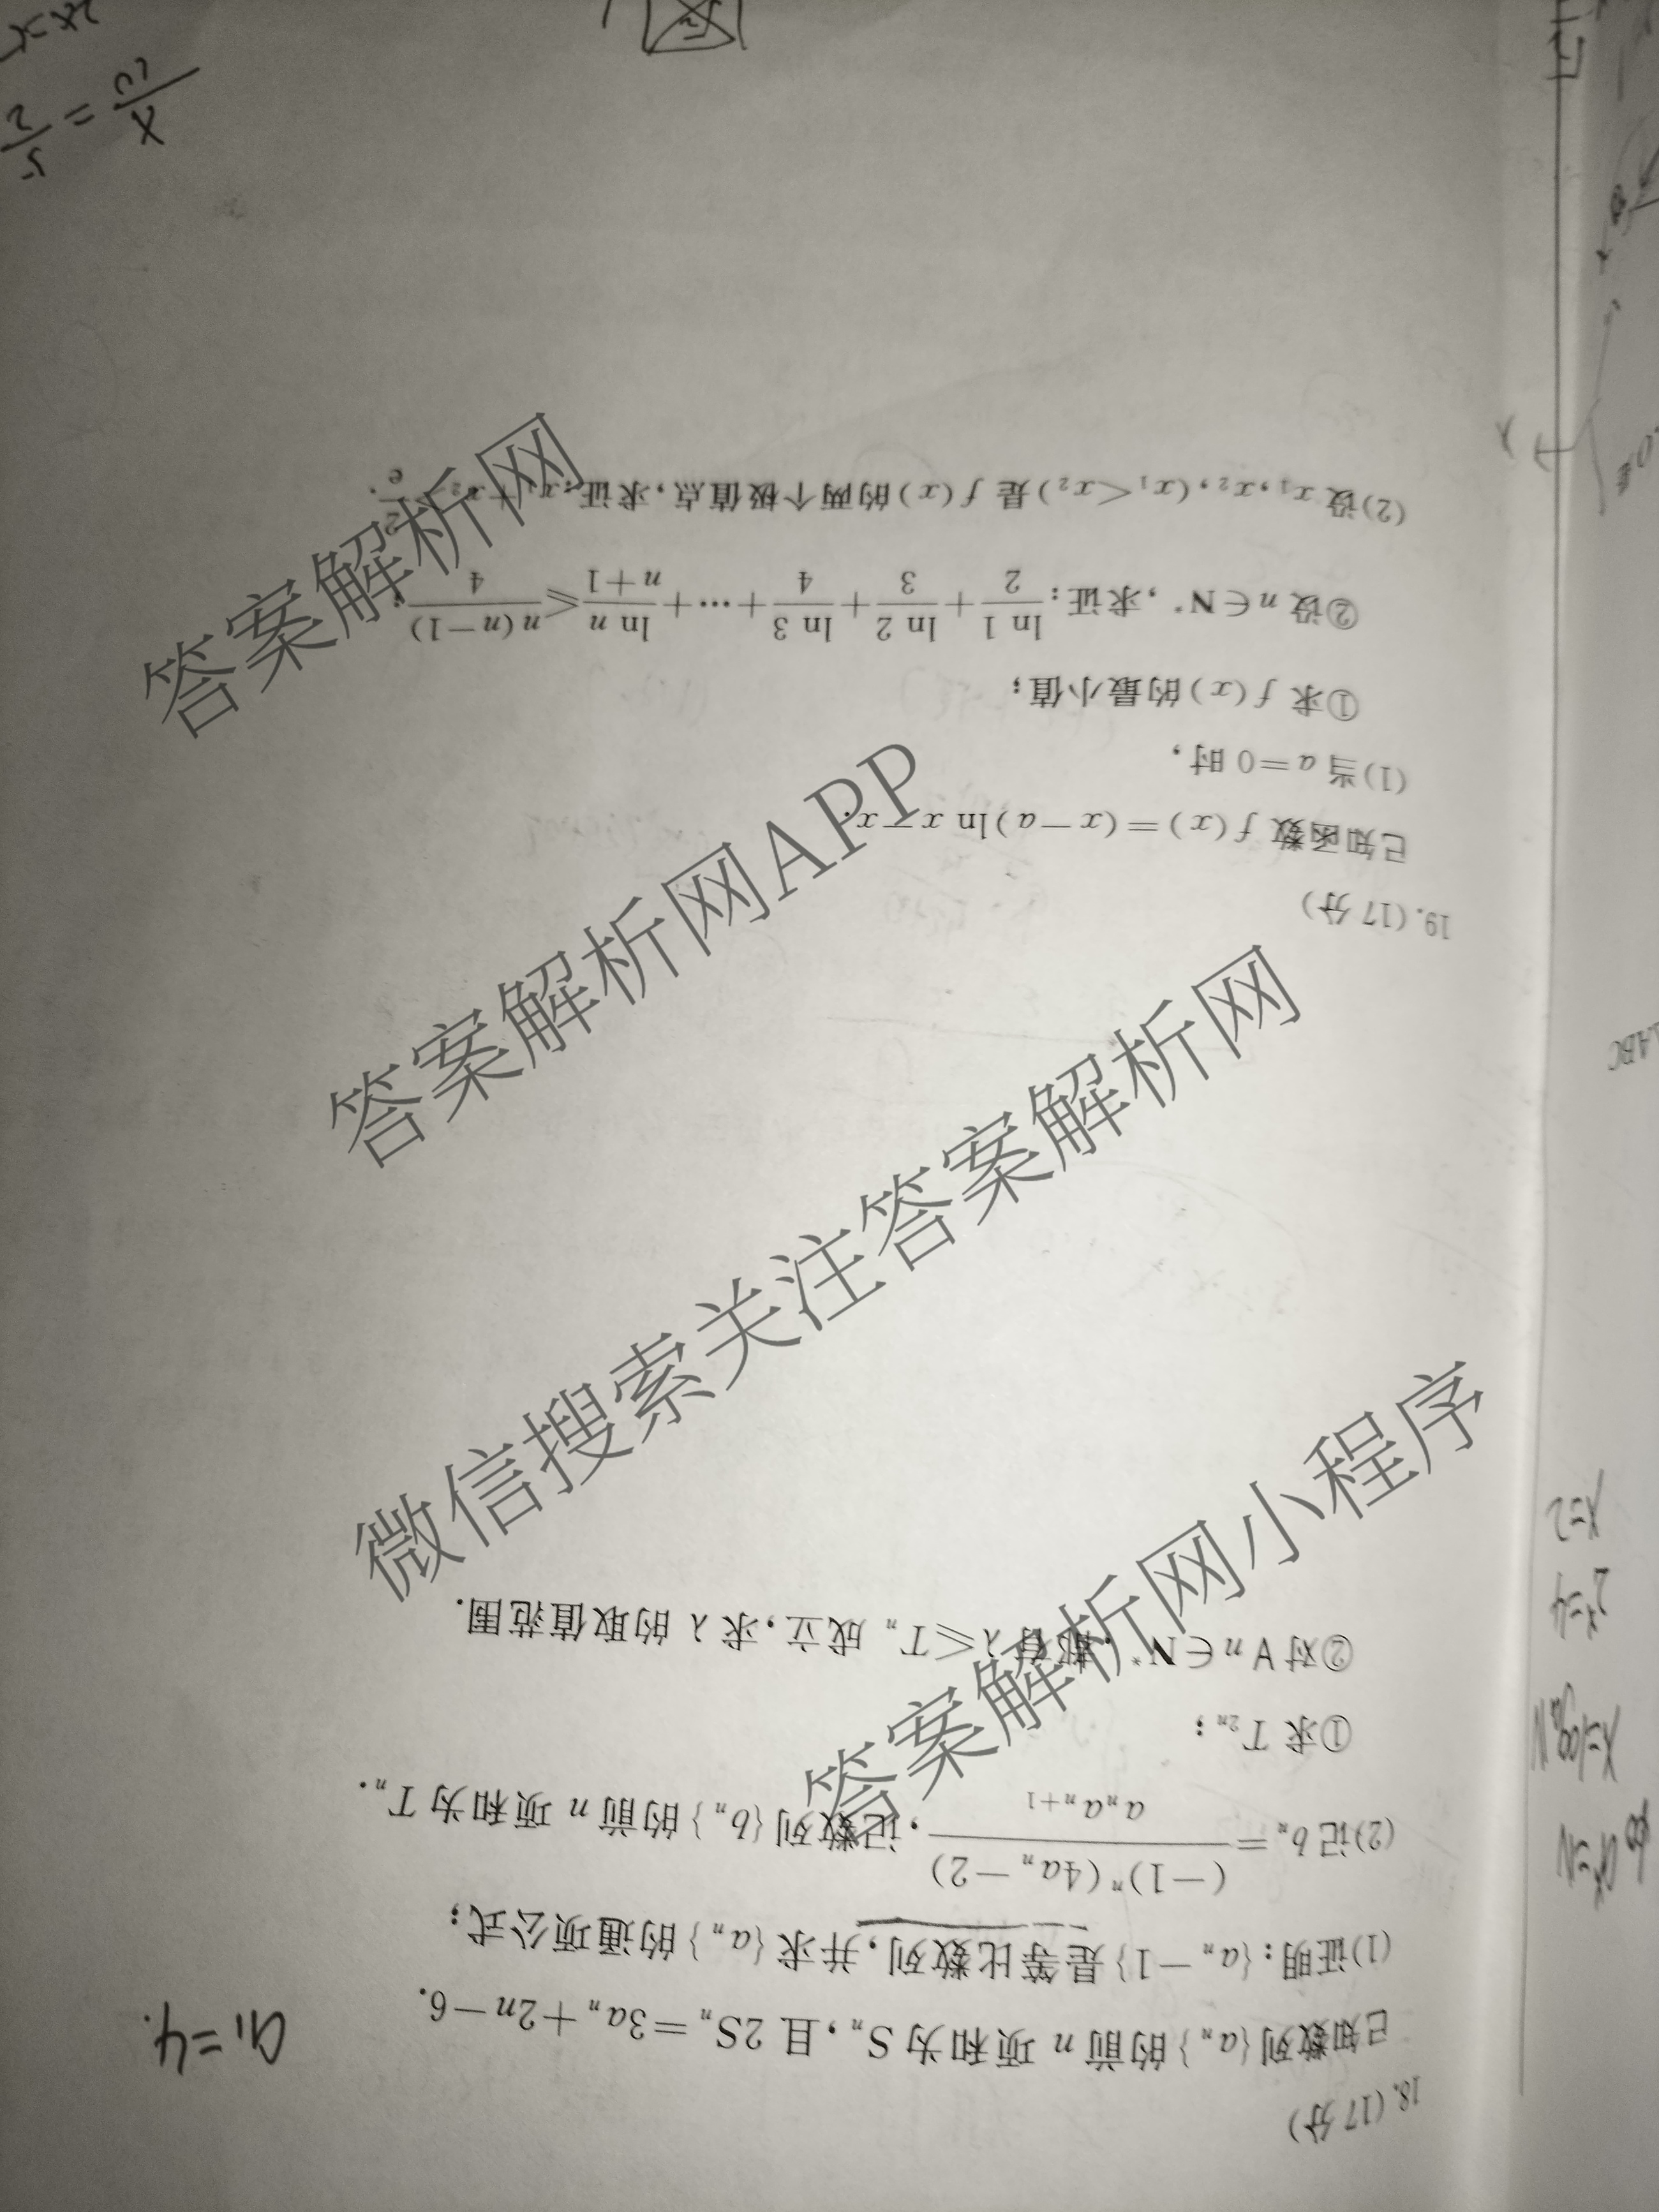 18.(17分)
已知数列{aₙ}的前 n 项和为 Sₙ,且 2Sₙ=3aₙ+2n-6.
a₁=4.
(1)证明:{aₙ-1}是等比数列,并求{aₙ}的通项公式;
(2)记 bₙ=\frac{(-1)ⁿ(4aₙ-2)}{aₙaₙ₊₁},记数列{bₙ}的前 n 项和为 Tₙ.
①求 T₂ₙ;
②对∀n∈N*,都有 λ≤Tₙ 成立,求 λ 的取值范围.
19.(17分)
已知函数 f(x)=(x-a)ln x-x.
(1)当 a=0 时,
①求 f(x)的最小值;
②设 n∈N*,求证:\frac{ln 1}{2}+\frac{ln 2}{3}+\frac{ln 3}{4}+…+\frac{ln n}{n+1}≤\frac{n(n-1)}{4};
(2)设 x₁,x₂,(x₁<x₂)是 f(x)的两个极值点,求证:x₁+x₂>\frac{2}{e}.
x=logₐN
2ˣ=4
x=2
△ABC
答案解析网
答案解析网APP
微信搜索关注答案解析网
答案解析网小程序